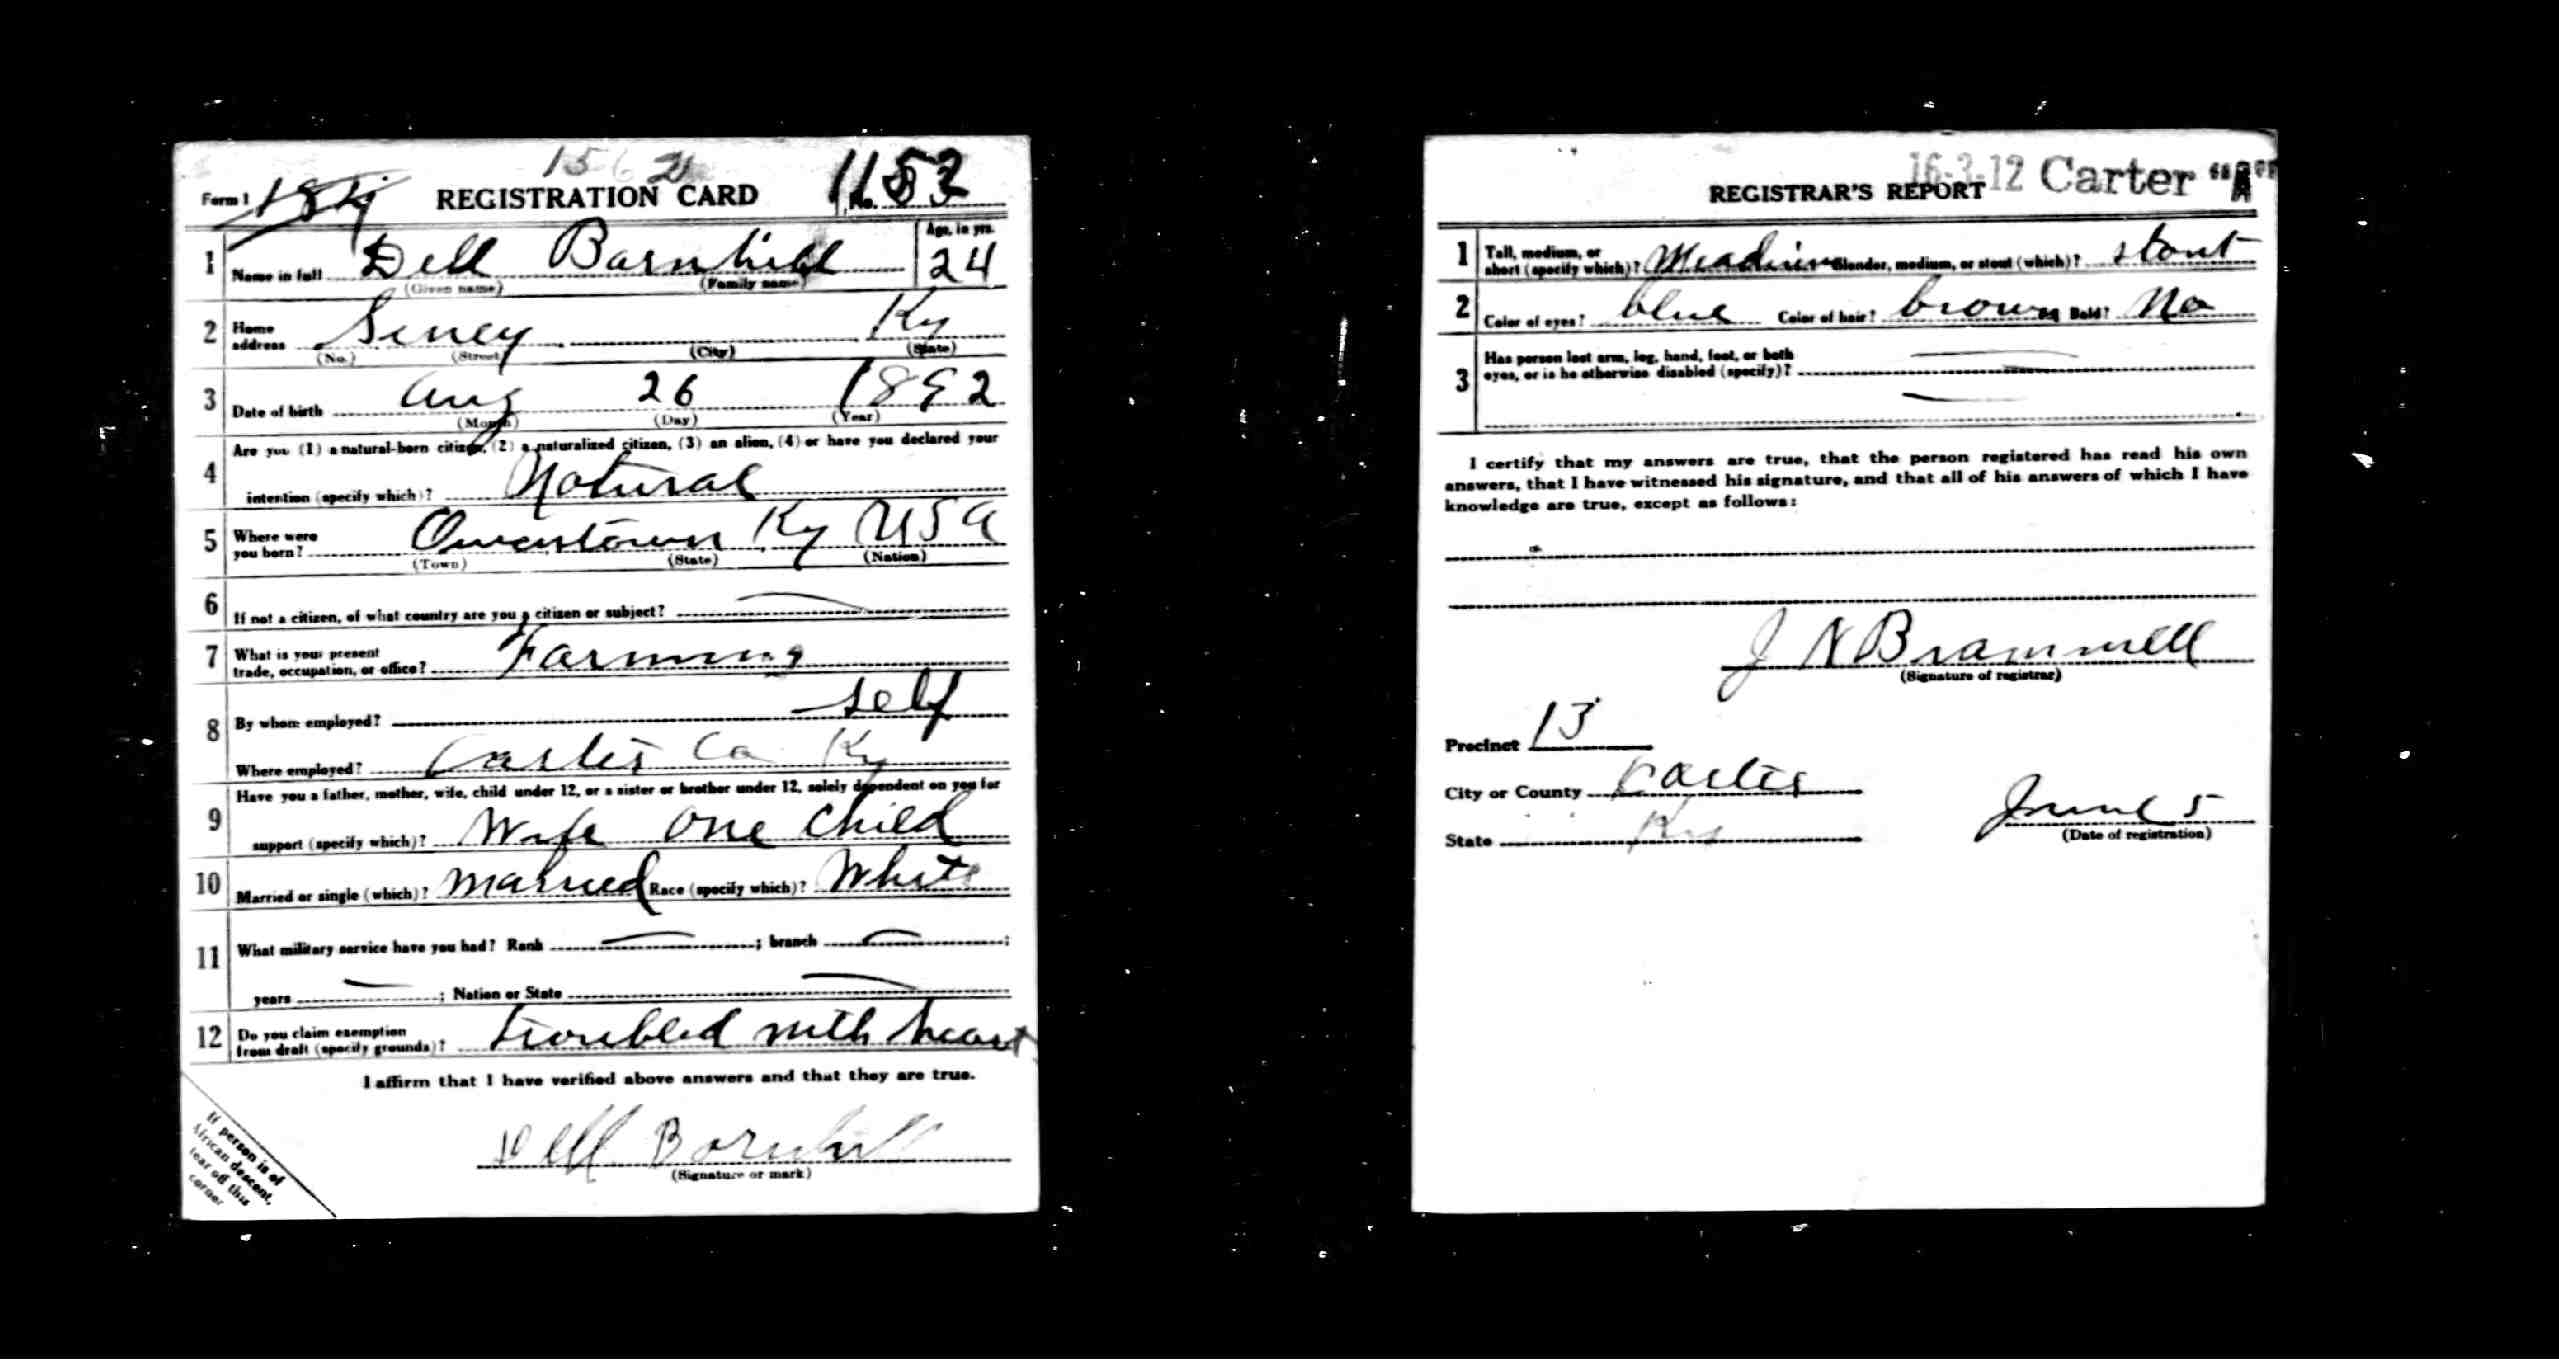 1562
Form 1 REGISTRATION CARD No. 1153
1 Name in full Dell Barnhill Age, in yrs. 24
(Given name) (Family name)
2 Home address Ky
(No.) (Street) (City) (State)
3 Date of birth Aug 26 1892
(Month) (Day) (Year)
4 Are you (1) a natural-born citizen, (2) a naturalized citizen, (3) an alien, (4) or have you declared your
intention (specify which)? Natural
5 Where were you born? Ky USA
(Town) (State) (Nation)
6 If not a citizen, of what country are you a citizen or subject? —
7 What is your present trade, occupation, or office? Farming
8 By whom employed? self
Where employed? Carter Co Ky
9 Have you a father, mother, wife, child under 12, or a sister or brother under 12, solely dependent on you for
support (specify which)? Wife One Child
10 Married or single (which)? Married Race (specify which)? White
11 What military service have you had? Rank — ; branch — ;
years — ; Nation or State —
12 Do you claim exemption from draft (specify grounds)? troubled with heart
I affirm that I have verified above answers and that they are true.
Dell Barnhill
(Signature or mark)
If person is of
African descent,
tear off this
corner
16-3-12 Carter "A"
REGISTRAR'S REPORT
1 Tall, medium, or short (specify which)? Meadium Slender, medium, or stout (which)? stout
2 Color of eyes? blue Color of hair? brown Bald? No
3 Has person lost arm, leg, hand, foot, or both
eyes, or is he otherwise disabled (specify)? —
—
I certify that my answers are true, that the person registered has read his own
answers, that I have witnessed his signature, and that all of his answers of which I have
knowledge are true, except as follows:
J N Brammell
(Signature of registrar)
Precinct 13
City or County Carter
State Ky
June 5
(Date of registration)